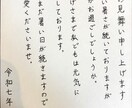 見舞い申し上げます
い暑さが続いておりますが
がお過ごしでしょうか。
さまで私どもは元気に
しております。
まだ暑い日が続きますので
愛くださいませ。
令和七年